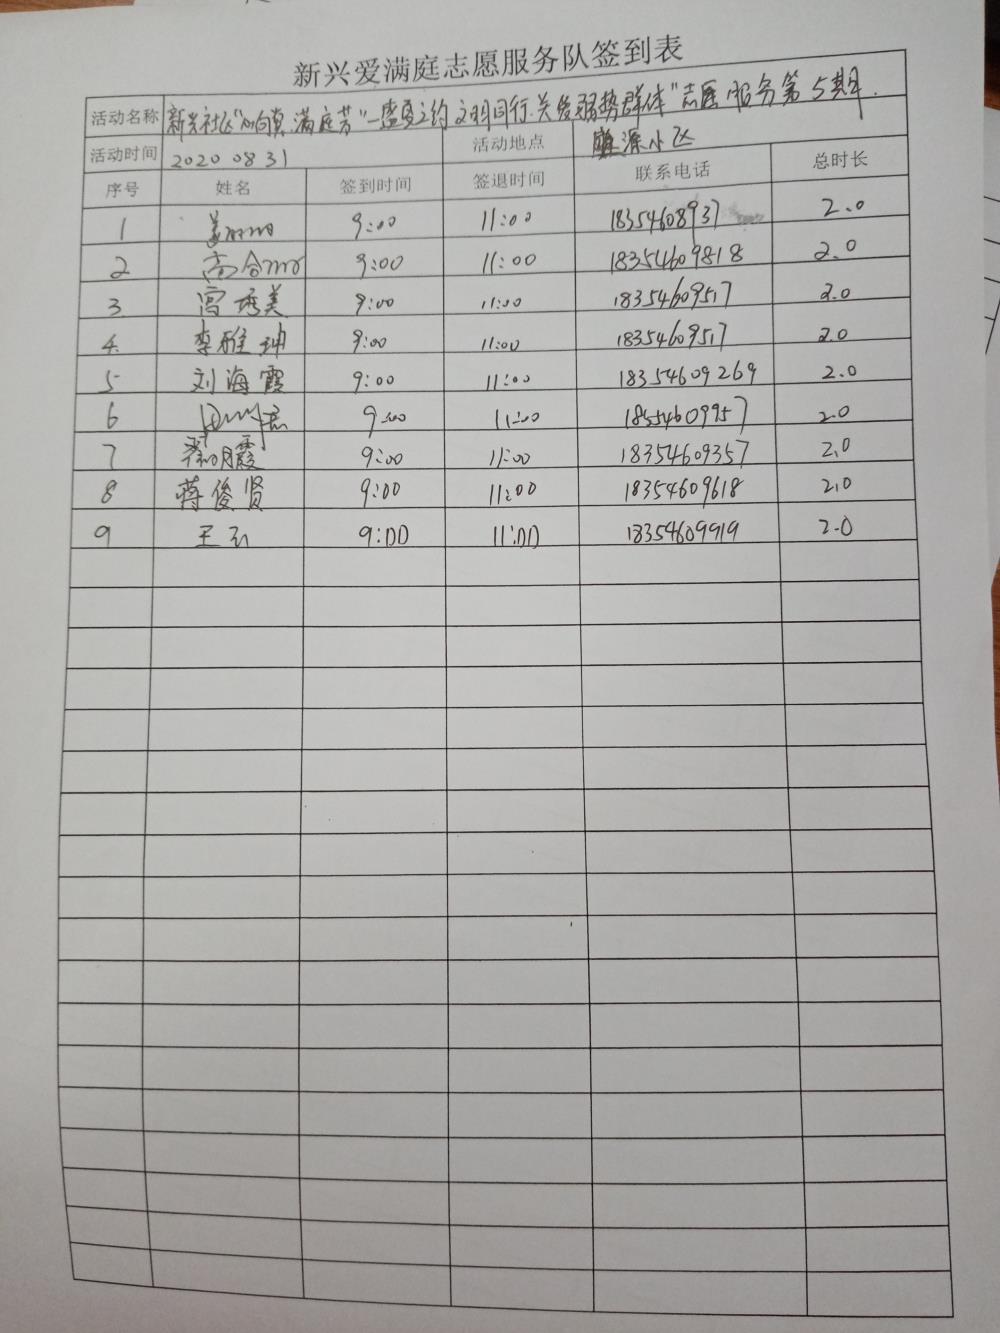 新兴爱满庭志愿服务队签到表
活动名称 新兴社区"心向真 满庭芳"一盛夏之约 文明同行.关爱弱势群体"志愿服务第5期.
活动时间 2020 08 31 活动地点 小区
序号 姓名 签到时间 签退时间 联系电话 总时长
1 9:00 11:00 18354608937 2.0
2 9:00 11:00 18354609818 2.0
3 宫秀美 9:00 11:00 18354609517 2.0
4 李雅坤 9:00 11:00 18354609517 2.0
5 刘海霞 9:00 11:00 18354609269 2.0
6 9:00 11:00 18554609957 2.0
7 翟明霞 9:00 11:00 18354609357 2.0
8 蒋俊贤 9:00 11:00 18354609618 2.0
9 王 9:00 11:00 18354609919 2.0